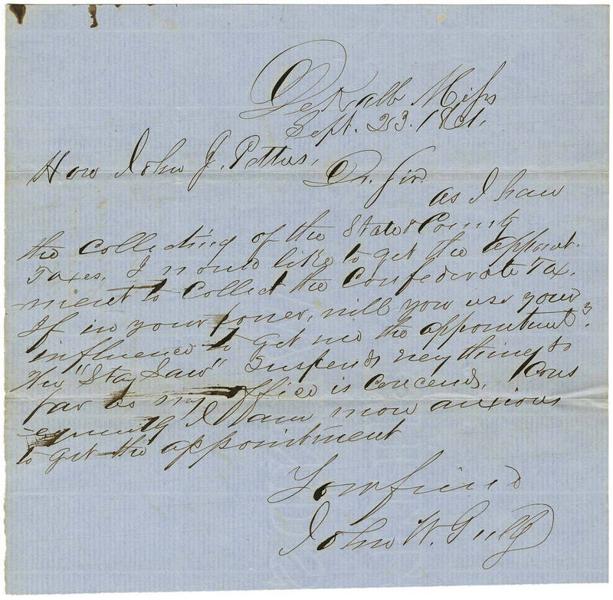 DeKalb Miss
Sept. 23. 1861.
Hon John J. Pettus,
Dr. Sir
as I have
the collecting of the State & County
Taxes, I would like to get the appoint-
ment to collect the Confederate Tax.
If in your power, will you use your
influence to get me the appointment?
The "Stay Law" Suspends everything so
far as my office is concernd, Cons
equently I am now anxious
to get the appointment
Your friend
John W. Gully